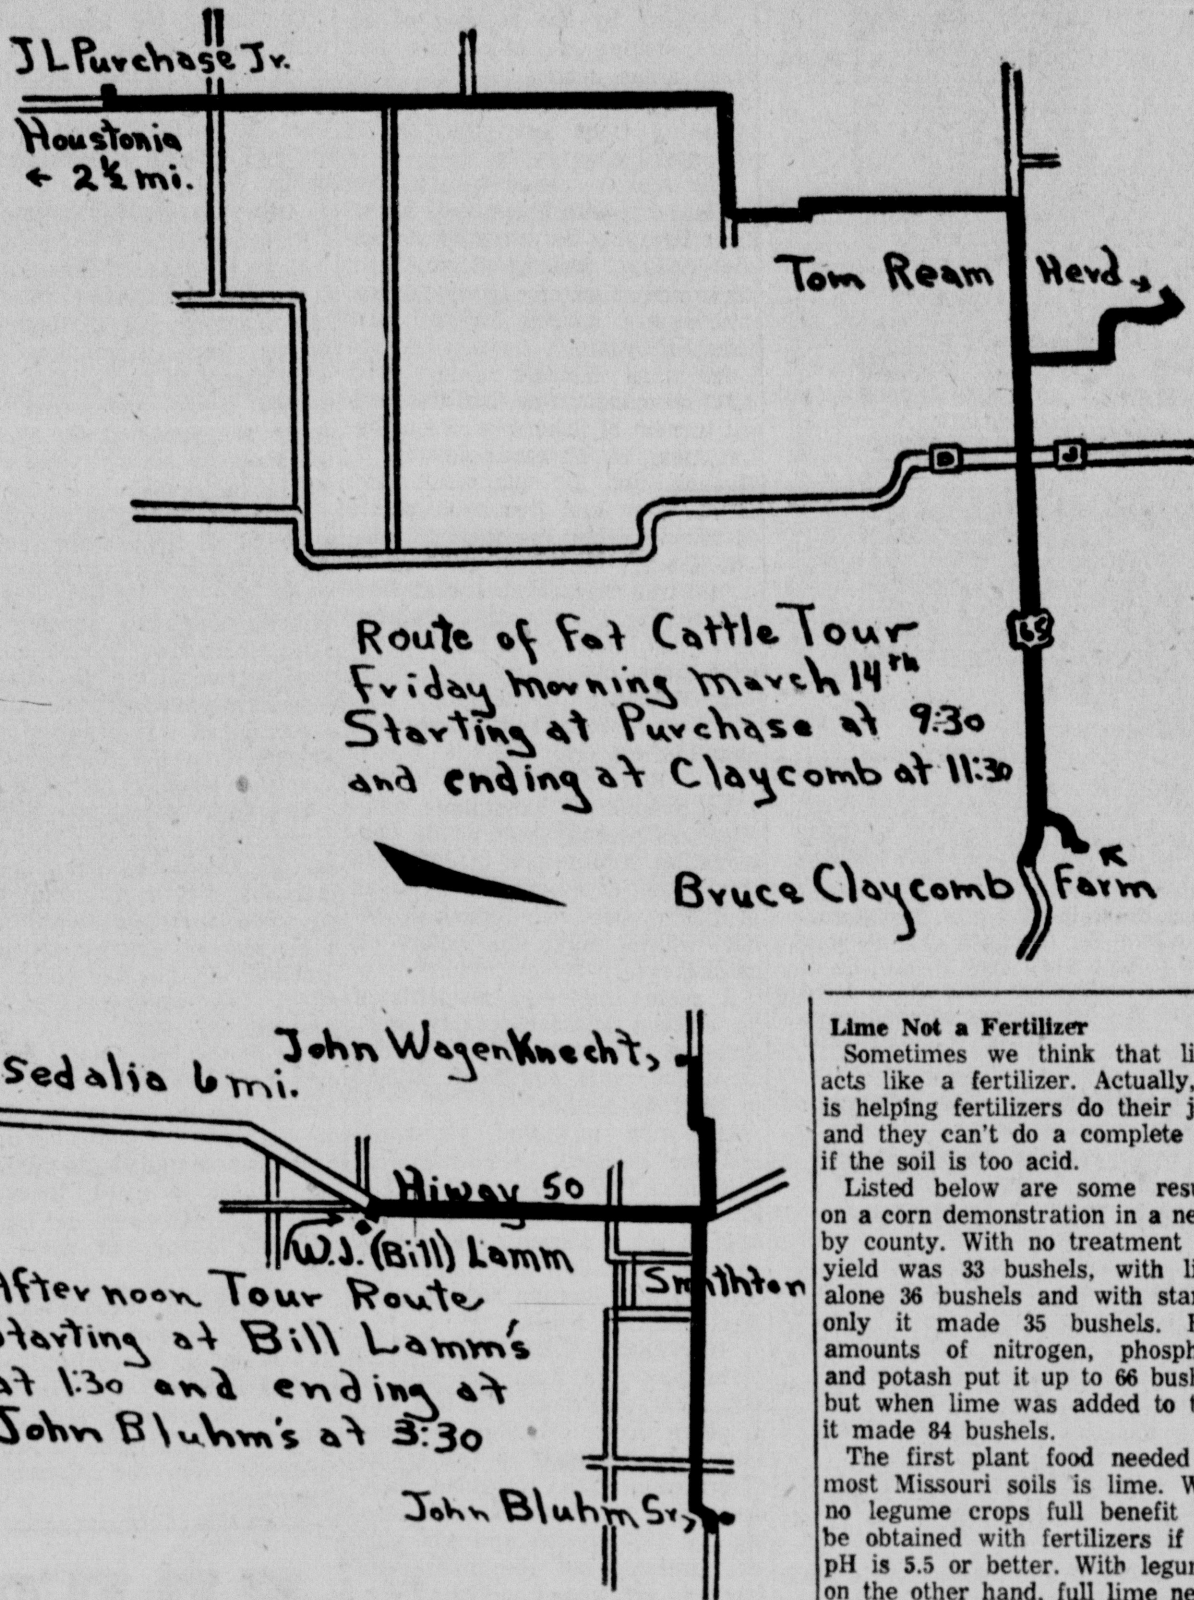 J L Purchase Jr.
Houstonia
← 2½ mi.
Tom Ream Herd
D J
65
Route of Fat Cattle Tour
Friday morning March 14th
Starting at Purchase at 9:30
and ending at Claycomb at 11:30
Bruce Claycomb Farm
John WagenKnecht,
Sedalia 6 mi.
Hiway 50
W.J. (Bill) Lamm
Smithton
After noon Tour Route
Starting at Bill Lamm's
at 1:30 and ending at
John Bluhm's at 3:30
John Bluhm Sr,
Lime Not a Fertilizer
Sometimes we think that li
acts like a fertilizer. Actually,
is helping fertilizers do their j
and they can't do a complete
if the soil is too acid.
Listed below are some res
on a corn demonstration in a ne
by county. With no treatment
yield was 33 bushels, with li
alone 36 bushels and with star
only it made 35 bushels.
amounts of nitrogen, phosph
and potash put it up to 66 bush
but when lime was added to t
it made 84 bushels.
The first plant food needed
most Missouri soils is lime. W
no legume crops full benefit
be obtained with fertilizers if
pH is 5.5 or better. With legum
on the other hand, full lime ne